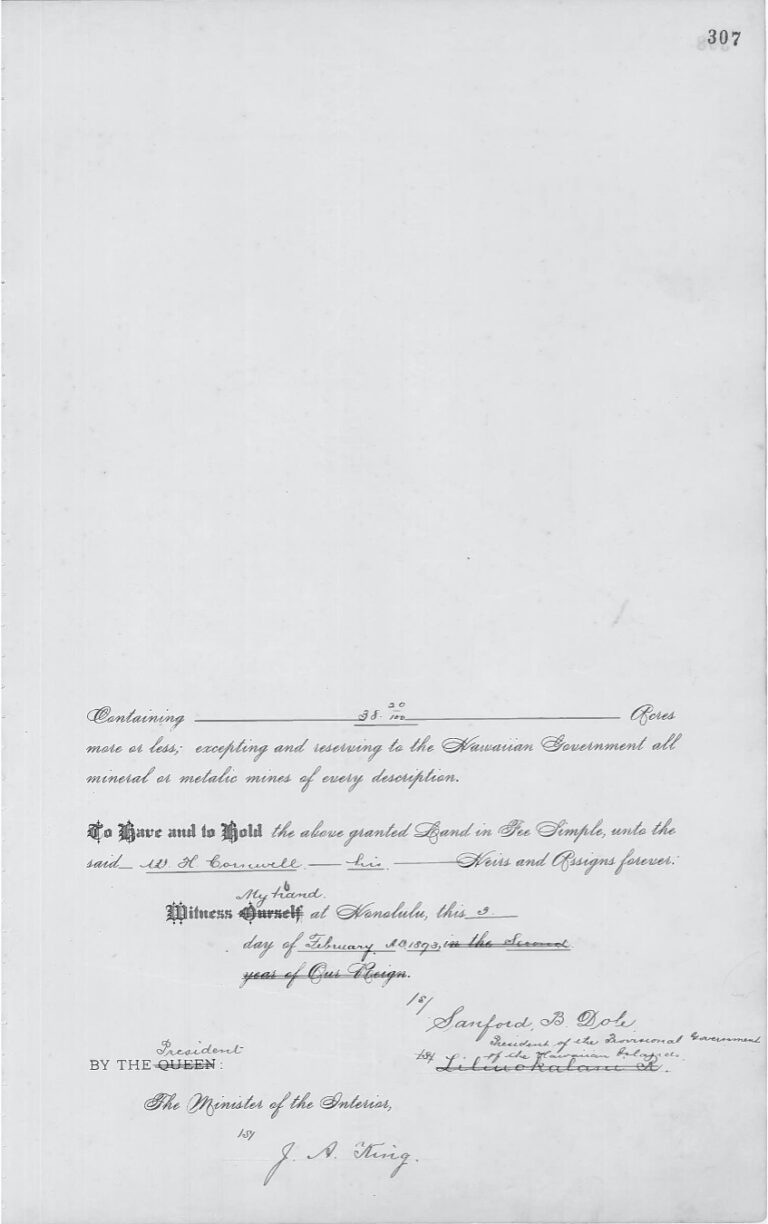 307
Containing 38. 20/100 Acres
more or less; excepting and reserving to the Hawaiian Government all
mineral or metalic mines of every description.
To Have and to Hold the above granted Land in Fee Simple, unto the
said W. H. Cornwell his Heirs and Assigns forever.
My hand.
Witness Ourself at Honolulu, this 3
day of February A.D. 1893, in the Second
year of Our Reign.
/s/
Sanford, B. Dole
President of the Provisional Government
of the Hawaiian Islands.
President
BY THE QUEEN:
/s/ Liliuokalani R.
The Minister of the Interior,
/s/
J. A. King.